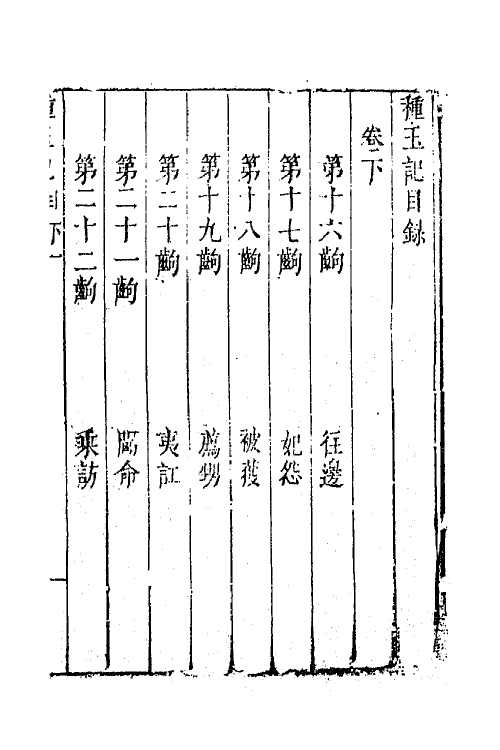 種玉記目錄
卷下
第十六齣 往邊
第十七齣 妃怨
第十八齣 被獲
第十九齣 薦甥
第二十齣 夷訌
第二十一齣 命
第二十二齣 乘訪